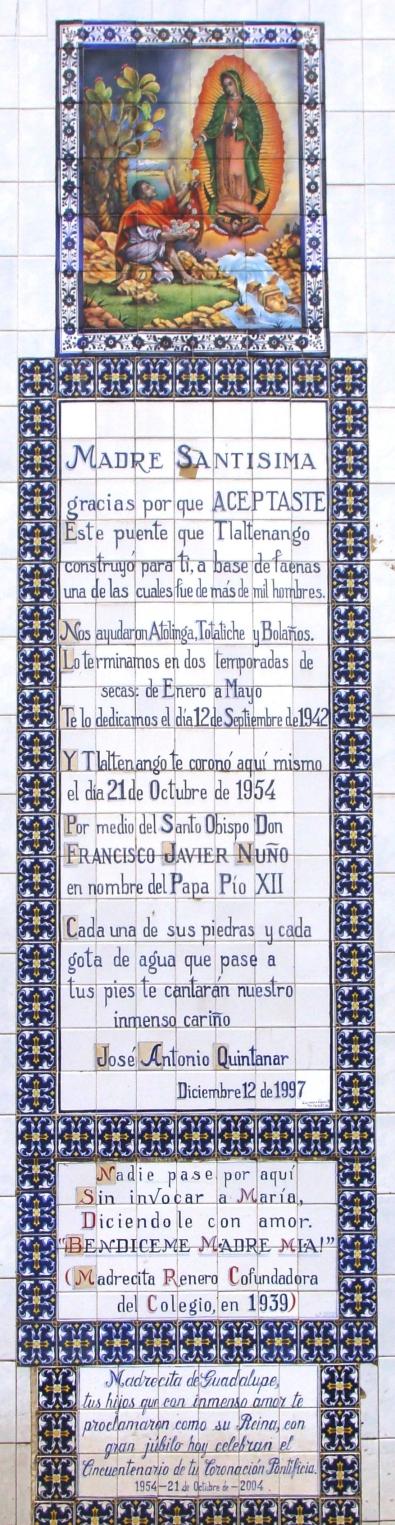 MADRE SANTISIMA
gracias por que ACEPTASTE
Este puente que Tlaltenango
construyó para ti, a base de faenas
una de las cuales fue de más de mil hombres.
Nos ayudaron Atolinga, Totatiche y Bolaños.
Lo terminamos en dos temporadas de
secas: de Enero a Mayo
Te lo dedicamos el día 12 de Septiembre de 1942
Y Tlaltenango te coronó aquí mismo
el día 21 de Octubre de 1954
Por medio del Santo Obispo Don
FRANCISCO JAVIER NUÑO
en nombre del Papa Pío XII
Cada una de sus piedras y cada
gota de agua que pase a
tus pies te cantarán nuestro
inmenso cariño
José Antonio Quintanar
Diciembre 12 de 1997
Nadie pase por aquí
Sin invocar a María,
Diciendole con amor.
"BENDICEME MADRE MIA!"
(Madrecita Renero Cofundadora
del Colegio, en 1939)
Madrecita de Guadalupe,
tus hijos que con inmenso amor te
proclamaron como su Reina, con
gran júbilo hoy celebran el
Cincuentenario de tu Coronación Pontificia.
1954-21 de Octubre de-2004